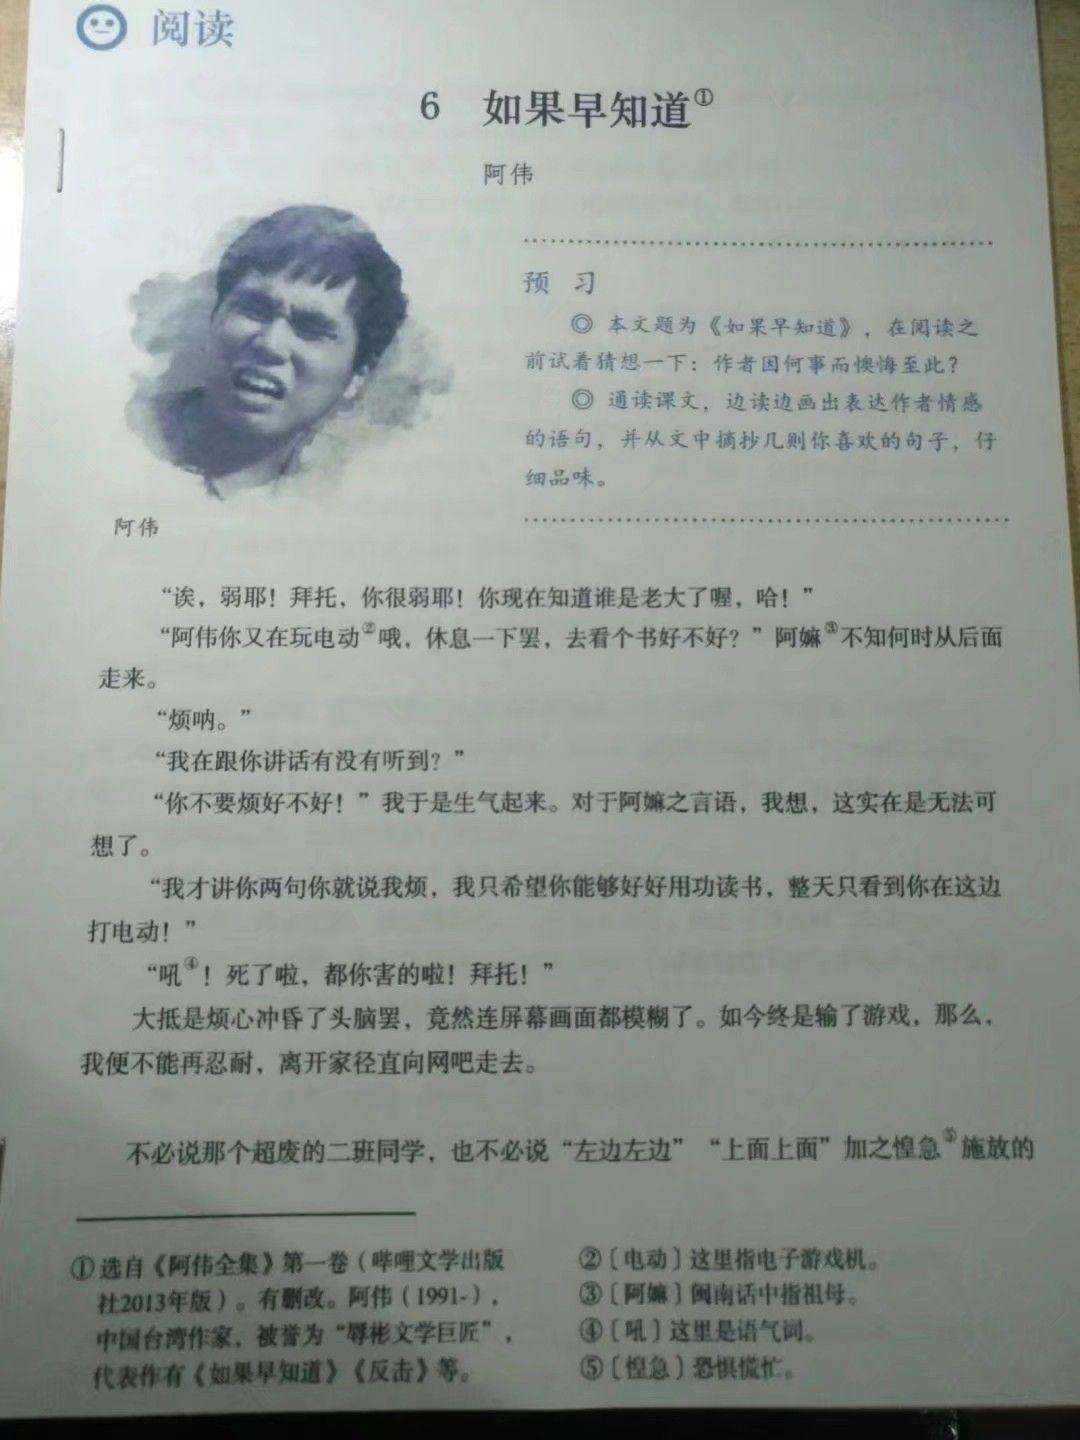 阅读
6 如果早知道①
阿伟
预 习
◎ 本文题为《如果早知道》，在阅读之
前试着猜想一下：作者因何事而懊悔至此？
◎ 通读课文，边读边画出表达作者情感
的语句，并从文中摘抄几则你喜欢的句子，仔
细品味。
阿伟
“诶，弱耶！拜托，你很弱耶！你现在知道谁是老大了喔，哈！”
“阿伟你又在玩电动②哦，休息一下罢，去看个书好不好？”阿嫲③不知何时从后面
走来。
“烦呐。”
“我在跟你讲话有没有听到？”
“你不要烦好不好！”我于是生气起来。对于阿嫲之言语，我想，这实在是无法可
想了。
“我才讲你两句你就说我烦，我只希望你能够好好用功读书，整天只看到你在这边
打电动！”
“吼④！死了啦，都你害的啦！拜托！”
大抵是烦心冲昏了头脑罢，竟然连屏幕画面都模糊了。如今终是输了游戏，那么，
我便不能再忍耐，离开家径直向网吧走去。
不必说那个超废的二班同学，也不必说“左边左边”“上面上面”加之惶急⑤施放的
①选自《阿伟全集》第一卷（哔哩文学出版
社2013年版）。有删改。阿伟（1991-），
中国台湾作家，被誉为“辱彬文学巨匠”，
代表作有《如果早知道》《反击》等。
②〔电动〕这里指电子游戏机。
③〔阿嫲〕闽南话中指祖母。
④〔吼〕这里是语气词。
⑤〔惶急〕恐惧慌忙。